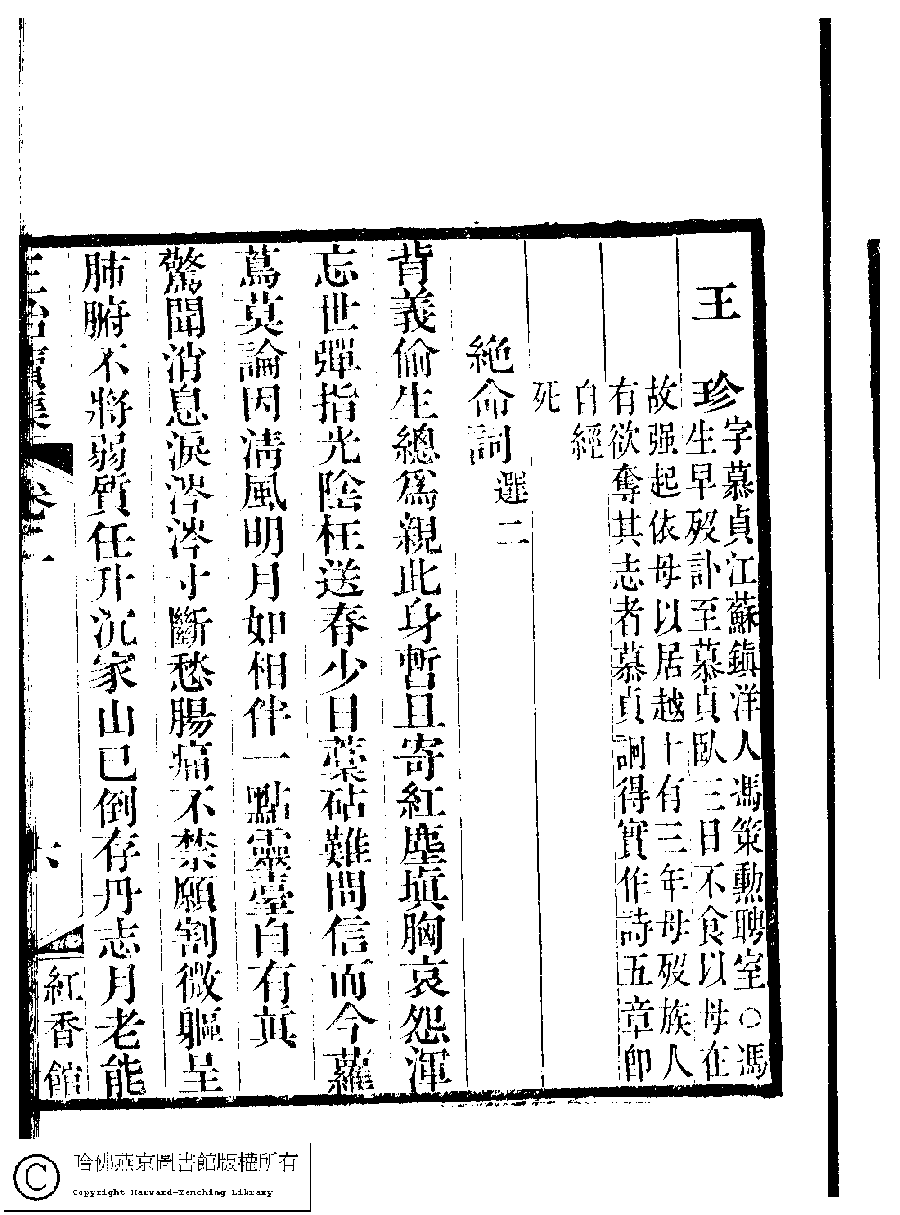 王 珍
字慕貞江蘇鎮洋人馮策勳聘室○馮
生早歿訃至慕貞臥三日不食以母在
故强起依母以居越十有三年母歿族人
有欲奪其志者慕貞詗得實作詩五章卽
自經
死
絶命詞選二
背義偷生總爲親此身暫且寄紅塵塡胸哀怨渾
忘世彈指光陰枉送春少日藁砧難問信而今蘿
蔦莫論因淸風明月如相伴一點靈臺自有眞
驚聞消息淚涔涔寸斷愁腸痛不禁願割微軀呈
肺腑不將弱質任升沉家山已倒存丹志月老能
卷二
六
紅香館
哈佛燕京圖書館版權所有
Copyright Harvard-Yenching Library